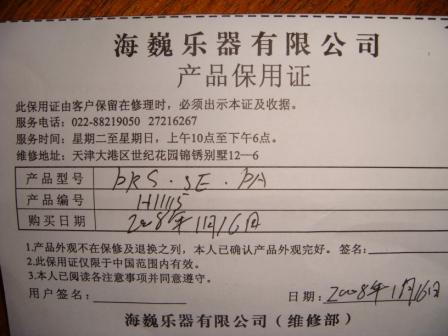 海巍乐器有限公司
产品保用证
此保用证由客户保留在修理时，必须出示本证及收据。
服务电话：022-88219050 27216267
服务时间：星期二至星期日，上午10点至下午6点。
维修地址：天津大港区世纪花园锦锈别墅12—6
产品型号 PRS·SE·PA
产品编号 H1115
购买日期 2008年11月16日
1.产品外观不在保修及退换之列，本人已确认产品外观完好。 签名：
2.此保用证仅限于中国范围内有效。
3.本人已阅读各注意事项并同意遵守。
用户签名： 日期：2008年11月16日
海巍乐器有限公司（维修部）